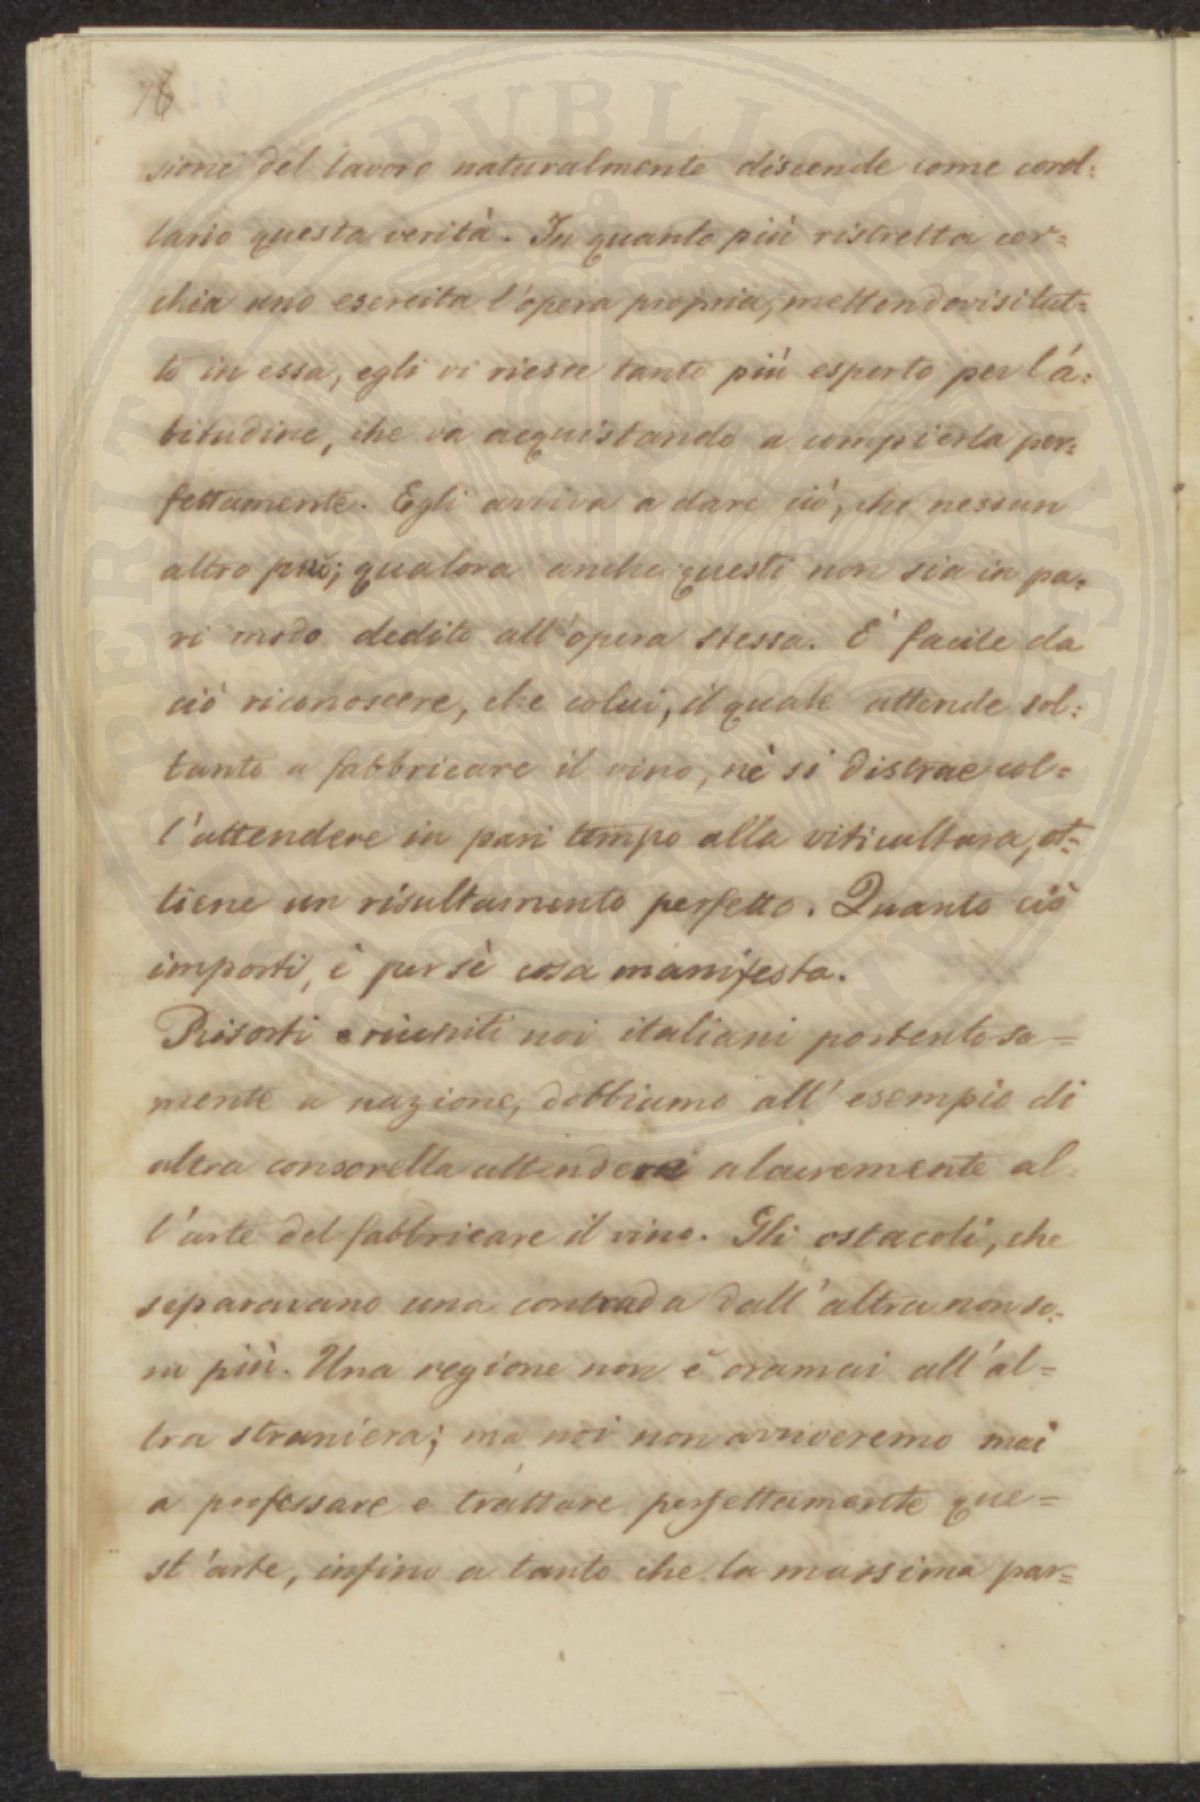 76
sione del lavoro naturalmente discende come corol:
lario questa verità. In quanto più ristretta cer=
chia uno esercita l'opera propria, mettendovisi tut=
to in essa, egli vi riesce tanto più esperto per l'a:
bitudine, che va acquistando a compierla per:
fettamente. Egli arriva a dare ciò, che nessun
altro può; qualora anche questi non sia in pa=
ri modo dedito all'opera stessa. E' facile da
ciò riconoscere, che colui, il quale attende sol:
tanto a fabbricare il vino, nè si distrae col=
l'attendere in pari tempo alla viticultura, ot=
tiene un risultamento perfetto. Quanto ciò
importi, è per sè cosa manifesta.
Risorti e riuniti noi italiani portentosa=
mente a nazione, dobbiamo all'esempio di
altra consorella attendere alacremente al=
l'arte del fabbricare il vino. Gli ostacoli, che
separavano una contrada dall'altra non so=
no più. Una regione non è oramai all'al=
tra straniera; ma noi non arriveremo mai
a professare e trattare perfettamente que=
st'arte, infino a tanto che la massima par=
PERITIA PUBLICAE